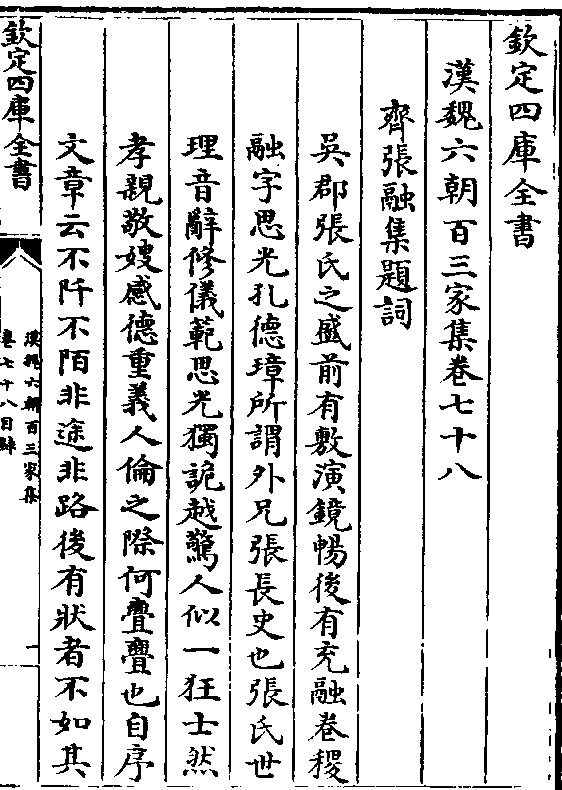 欽定四庫全書
漢魏六朝百三家集卷七十八
齊張融集題詞
吳郡張氏之盛前有敷演鏡暢後有充融卷稷
融字思光孔德璋所謂外兄張長史也張氏世
理音辭修儀範思光獨詭越驚人似一狂士然
孝親敬嫂感德重義人倫之際何亹亹也自序
文章云不阡不陌非途非路後有狀者不如其
欽定四庫全書
漢魏六朝百三家集
卷七十八目錄
一